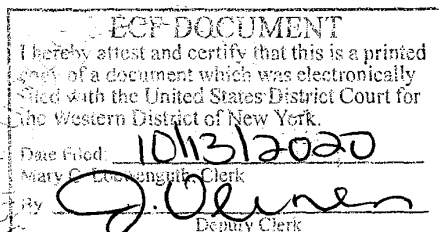 ECF DOCUMENT
I hereby attest and certify that this is a printed
copy of a document which was electronically
filed with the United States District Court for
the Western District of New York.
Date Filed: 10/13/2020
Mary C. Loewenguth, Clerk
By
Deputy Clerk